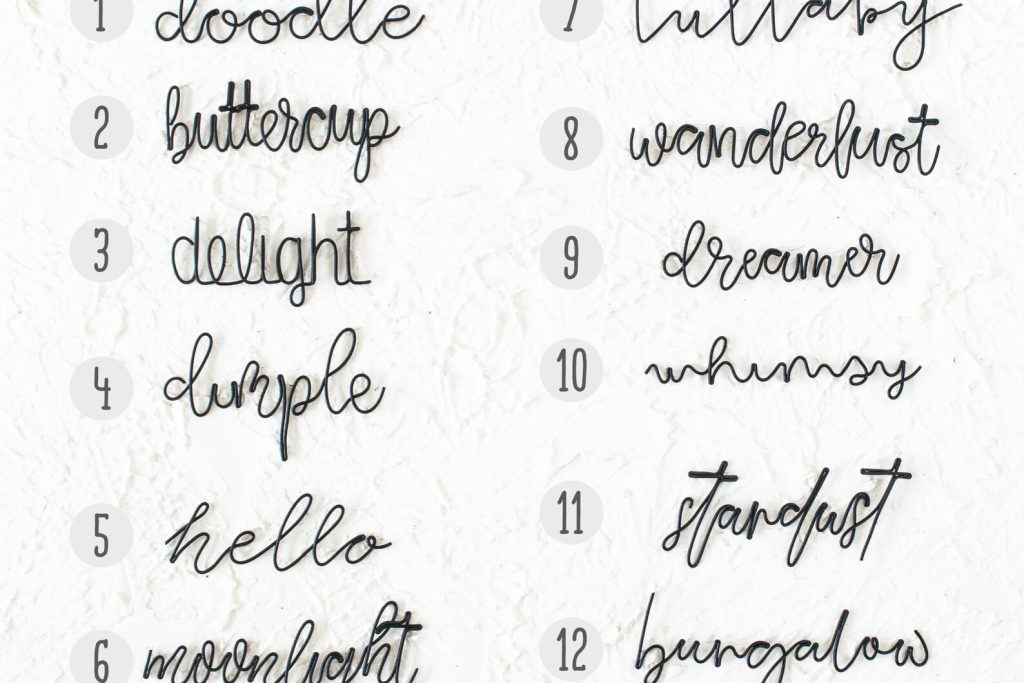 1 doodle
2 buttercup
3 delight
4 dimple
5 hello
6 moonlight
7 lullaby
8 wanderlust
9 dreamer
10 whimsy
11 stardust
12 bungalow